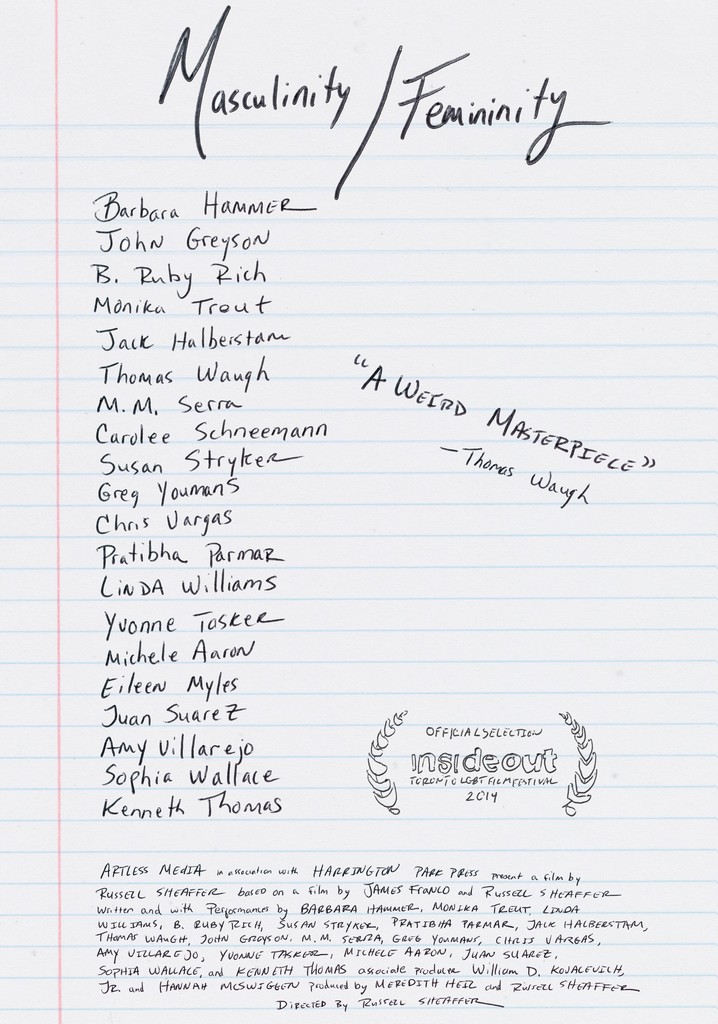 Masculinity / Femininity
Barbara HAMMER
John Greyson
B. Ruby Rich
Monika Treut
Jack Halberstam
Thomas Waugh
M.M. Serra
Carolee Schneemann
Susan Stryker
Greg Youmans
Chris Vargas
Pratibha Parmar
LINDA Williams
Yvonne Tasker
Michele Aaron
Eileen Myles
Juan Suarez
Amy Villarejo
Sophia Wallace
Kenneth Thomas
"A WEIRD MASTERPIECE"
—Thomas Waugh
OFFICIAL SELECTION
insideout
TORONTO LGBT FILM FESTIVAL
2014
ARTLESS MEDIA in association with HARRINGTON PARK PRESS present a film by
RUSSELL SHEAFFER based on a film by JAMES FRANCO and RUSSELL SHEAFFER
written and with Performances by BARBARA HAMMER, MONIKA TREUT, LINDA
WILLIAMS, B. RUBY RICH, SUSAN STRYKER, PRATIBHA PARMAR, JACK HALBERSTAM,
THOMAS WAUGH, JOHN GREYSON, M.M. SERRA, GREG YOUMANS, CHRIS VARGAS,
AMY VILLAREJO, YVONNE TASKER, MICHELE AARON, JUAN SUAREZ,
SOPHIA WALLACE, and KENNETH THOMAS associate producer William D. KOVALEVICH,
JR. and HANNAH MCSWIGGEN produced by MEREDITH HEIL and RUSSELL SHEAFFER
DIRECTED BY RUSSELL SHEAFFER